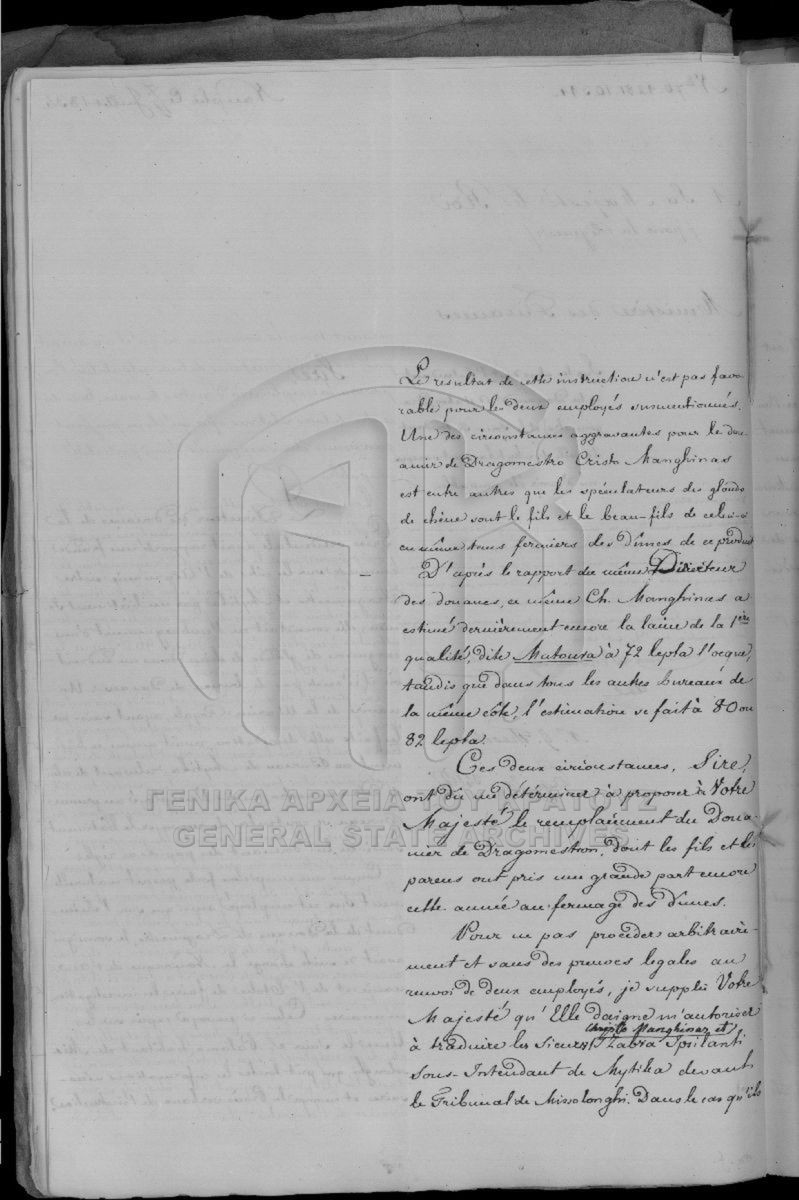 Le resultat de cette instruction n'est pas favo-
rable pour les deux employés susmentionnés.
Une des circonstances aggravantes pour le dou-
anier de Dragomestro Cristo Manghinas
est entre autres que les spéculateurs des glands
de chêne sont le fils et le beau-fils de celui-ci
en même tems fermiers des dîmes de ce produit
D'après le rapport du même Directeur
des douanes, ce même Ch. Manghinas a
estimé dernièrement encore la laine de la 1ère
qualité, dite Mutoura à 72 lepta l'ocque,
tandis que dans tous les autres bureaux de
la même côte, l'estimation se fait à 80 ou
82 lepta.
Ces deux circonstances, Sire,
ont dû me déterminer à proposer à Votre
Majesté le remplacement du Doua-
nier de Dragomestron, dont les fils et les
parens ont pris une grande part encore
cette année au fermage des Dîmes.
Pour ne pas procéder arbitraire-
ment et sans des preuves legales au
renvoi de deux employés, je supplie Votre
Majesté qu'Elle daigne m'autoriser
Christo Manghinas et
à traduire les Sieurs Zabra Spilanti
Sous-Intendant de Mytika devant
le Tribunal de Missolonghi. Dans le cas qu'ils
ΓΕΝΙΚΑ ΑΡΧΕΙΑ ΤΟΥ ΚΡΑΤΟΥΣ
GENERAL STATE ARCHIVES